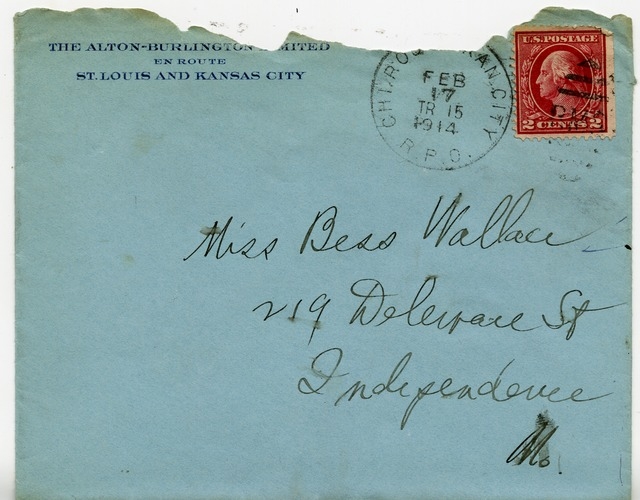 THE ALTON-BURLINGTON LIMITED
EN ROUTE
ST. LOUIS AND KANSAS CITY
KAN. CITY
FEB
17
TR 15
1914
R.P.O.
U.S. POSTAGE
2 CENTS 2
Miss Bess Wallace
219 Delaware St
Independence
Mo.